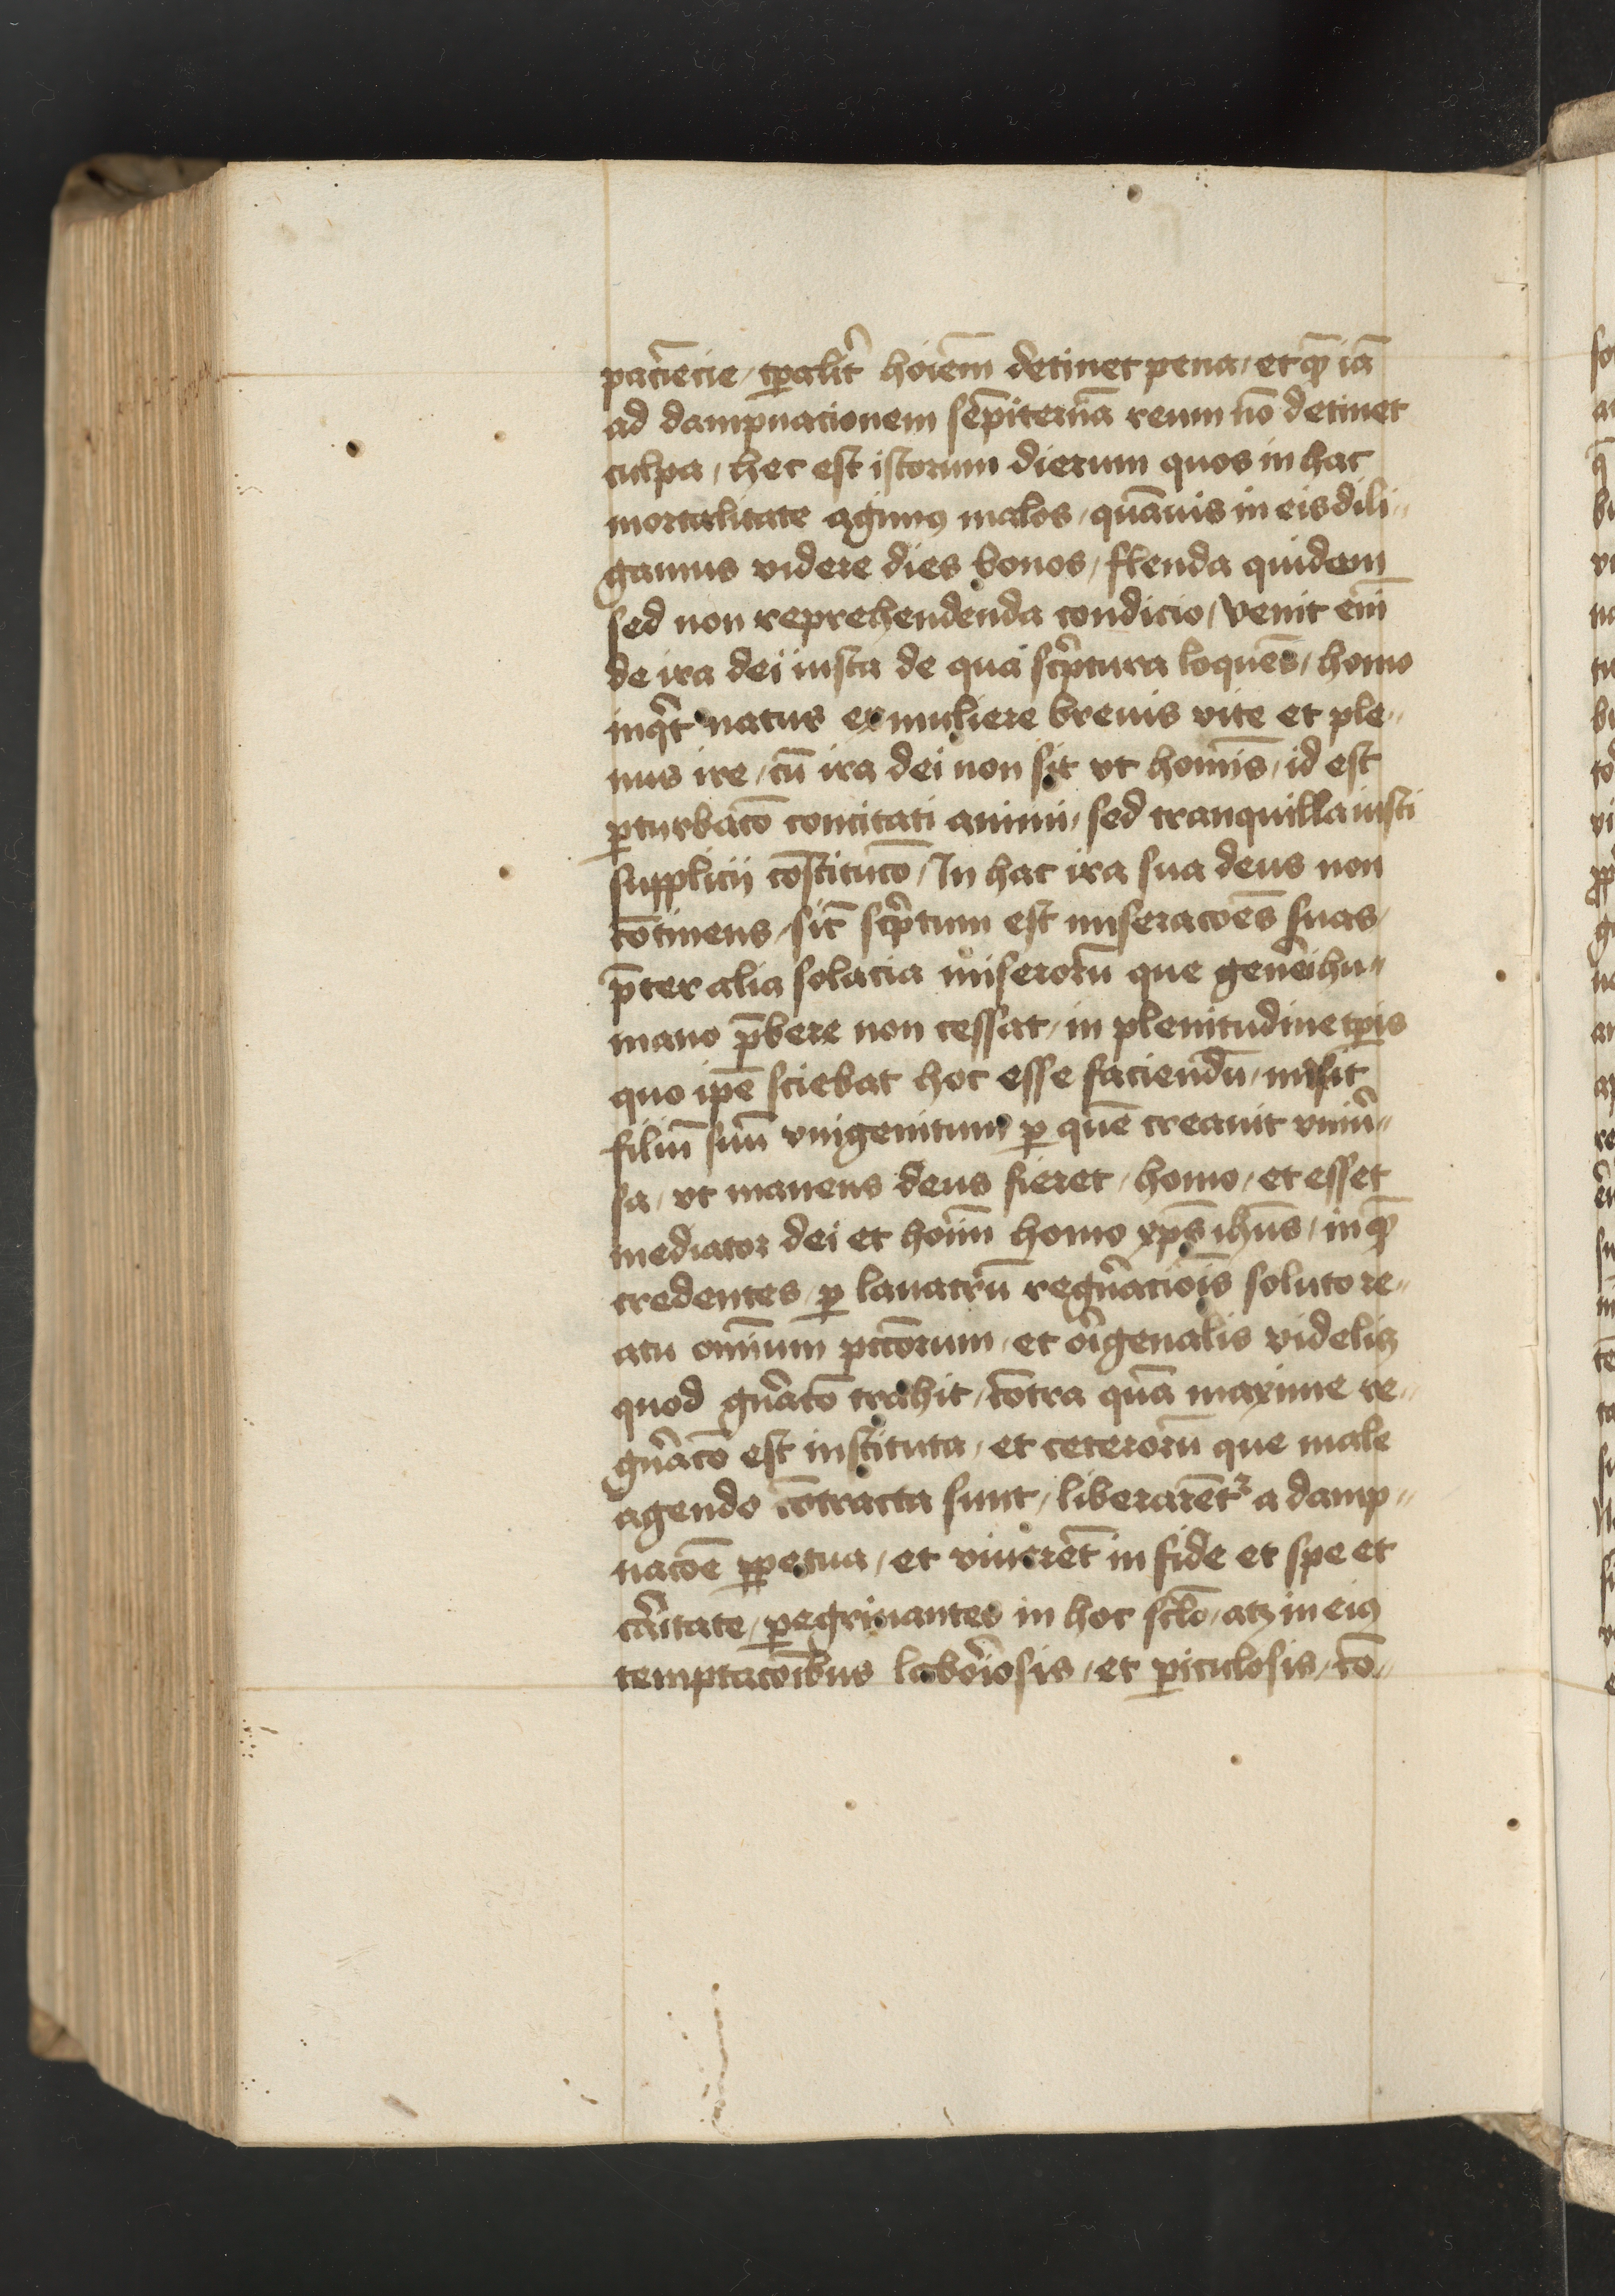 pacie͞cie / tp̄alit͛ hoi͞em detinet pena / et qͣ̄ iā
ad dampnacionem se͞piternā reum nō detinet
culpa / hec est istorum dierum quos in hac
mortalitate agimꝰ malos / quāuis in eis dili〃
gamus videre dies bonos / flenda quidem
sed non reprehendenda condicio / Venit eni͞
de ira dei iusta de qua sc͛ptura loquēs / homo
inqͥt natus ex muliere breuis vite et ple〃
nus ire / cū ira dei non sit vt homīs / id est
ꝑturbac͞o concitati animi / sed tranquilla iusti
supplicij co͞stituc͞o / In hac ira sua deus non
co͞tinens / sic͛ sc͛ptum est miserac͞oes suas /
p͞ter alia solacia miserorū que gen͛ei hu〃
mano p͞bere non cessat / in plenitudine tp̄is
quo ip͞e sciebat hoc esse faciendū / misit
filiū suū vnigenitum ꝑ quē creauit vniu͛〃
sa / vt manens deus fieret / homo / et esset
mediator dei et hoi͞m homo xp͞s ih͞us / in qͣ̄
credentes / ꝑ lauacrū regn͛acio͞is soluto re〃
atu omnium pcc͞orum / et o͛igenalis videlicꝫ
quod gn͛ac͞o trahit / co͞tra quā maxime re〃
gn͛ac͞o est instituta / et ceterorū que male
agendo co͞tracta sunt / liberare͞tᷣ a damp〃
nac͞oe ꝑpetua / et viuere͞t in fide et spe et
ca͛itate / ꝑegrinantes in hoc sc͞lo / atꝫ in eiꝰ
temptac͞oibus labo͛iosis / et ꝑiculosis / co͞〃